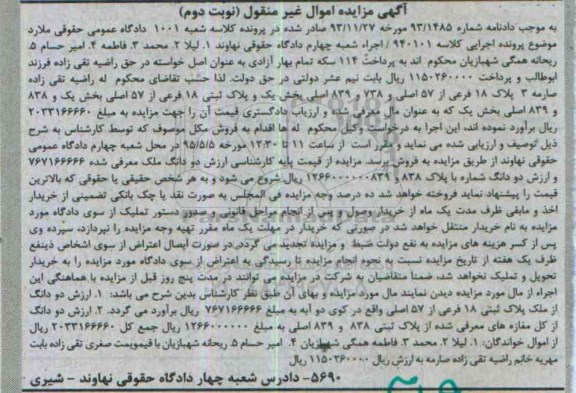 آگهی مزایده اموال غیر منقول (نوبت دوم)
به موجب دادنامه شماره ۹۳/۱۴۸۵ مورخه ۹۳/۱۱/۲۷ صادر شده در پرونده کلاسه شعبه ۱۰۰۱ دادگاه عمومی حقوقی ملارد
موضوع پرونده اجرایی کلاسه ۹۴۰۱۰۱ / اجراء شعبه چهارم دادگاه حقوقی نهاوند ۱. لیلا ۲. محمد ۳. فاطمه ۴. امیر حسام ۵.
ریحانه همگی شهبازیان محکوم اند به پرداخت ۱۱۴ سکه تمام بهار آزادی به عنوان اصل خواسته در حق راضیه تقی زاده فرزند
ابوطالب و پرداخت ۱۱۵۰۲۶۰۰۰۰ ریال بابت نیم عشر دولتی در حق دولت. لذا حسب تقاضای محکوم له راضیه تقی زاده
صارمه ۳ پلاک ۱۸ فرعی از ۵۷ اصلی و ۷۳۸ و ۸۳۹ اصلی بخش یک و پلاک ثبتی ۱۸ فرعی از ۵۷ اصلی بخش یک و ۸۳۸
و ۸۳۹ اصلی بخش یک که به عنوان مال معرفی شده و ارزیاب دادگستری قیمت آن را جهت مزایده به مبلغ ۲۰۳۳۱۶۶۶۶۰
ریال برآورد نموده اند، این اجرا به درخواست وکیل محکوم له ها اقدام به فروش ملک موصوف که توسط کارشناسی به شرح
ذیل توصیف و ارزیابی شده می نماید و مقرر است از ساعت ۱۱ تا ۱۲:۳۰ مورخه ۹۵/۵/۵ در محل شعبه چهارم دادگاه عمومی
حقوقی نهاوند از طریق مزایده به فروش برسد. مزایده از قیمت پایه کارشناسی ارزش دو دانگ ملک معرفی شده ۷۶۷۱۶۶۶۶۶
و ارزش دو دانگ شماره با پلاک ۸۳۸ و ۸۳۹ ۱۲۶۶۰۰۰۰۰۰ ریال شروع می شود و به هر شخص حقیقی یا حقوقی که بالاترین
قیمت را پیشنهاد نماید فروخته خواهد شد ده درصد وجه مزایده فی المجلس به صورت نقد یا چک بانکی تضمینی از خریدار
اخذ و مابقی ظرف مدت یک ماه از خریدار وصول و پس از انجام مراحل قانونی و صدور دستور تملیک از سوی دادگاه مورد
مزایده به نام خریدار منتقل خواهد شد در صورتی که خریدار در مهلت یک ماه مقرر بقیه وجه مزایده را نپردازد، سپرده وی
پس از کسر هزینه های مزایده به نفع دولت ضبط و مزایده تجدید می گردد. در صورت ایصال اعتراض از سوی اشخاص ذینفع
ظرف یک هفته از تاریخ مزایده نسبت به نحوه انجام مزایده تا رسیدگی به اعتراض از سوی دادگاه مورد مزایده را به خریدار
تحویل و تملیک نخواهد شد، ضمناً متقاضیان به شرکت در مزایده می توانند در مدت پنج روز قبل از مزایده با هماهنگی این
اجراء از مال مورد مزایده دیدن نمایند مال مورد مزایده و بهای آن طبق نظر کارشناس بدین شرح می باشد: ۱. ارزش دو دانگ
از ملک پلاک ثبتی ۱۸ فرعی از ۵۷ اصلی واقع در کوی دو آبه به مبلغ ۷۶۷۱۶۶۶۶۶ ریال برآورد می گردد. ۲. ارزش دو دانگ
از کل مغازه های معرفی شده از پلاک ثبتی ۸۳۸ و ۸۳۹ اصلی به مبلغ ۱۲۶۶۰۰۰۰۰۰ ریال جمع کل ۲۰۳۳۱۶۶۶۶۰ ریال
از اموال خواندگان: ۱. لیلا ۲. محمد ۳. فاطمه همگی شهبازیان ۴. امیر حسام ۵. ریحانه شهبازیان با قیمومیت صغری تقی زاده بابت
مهریه خانم راضیه تقی زاده صارمه به ارزش ریال ۱۱۵۰۲۶۰۰۰۰ ریال
۵۶۹۰- دادرس شعبه چهار دادگاه حقوقی نهاوند - شیری